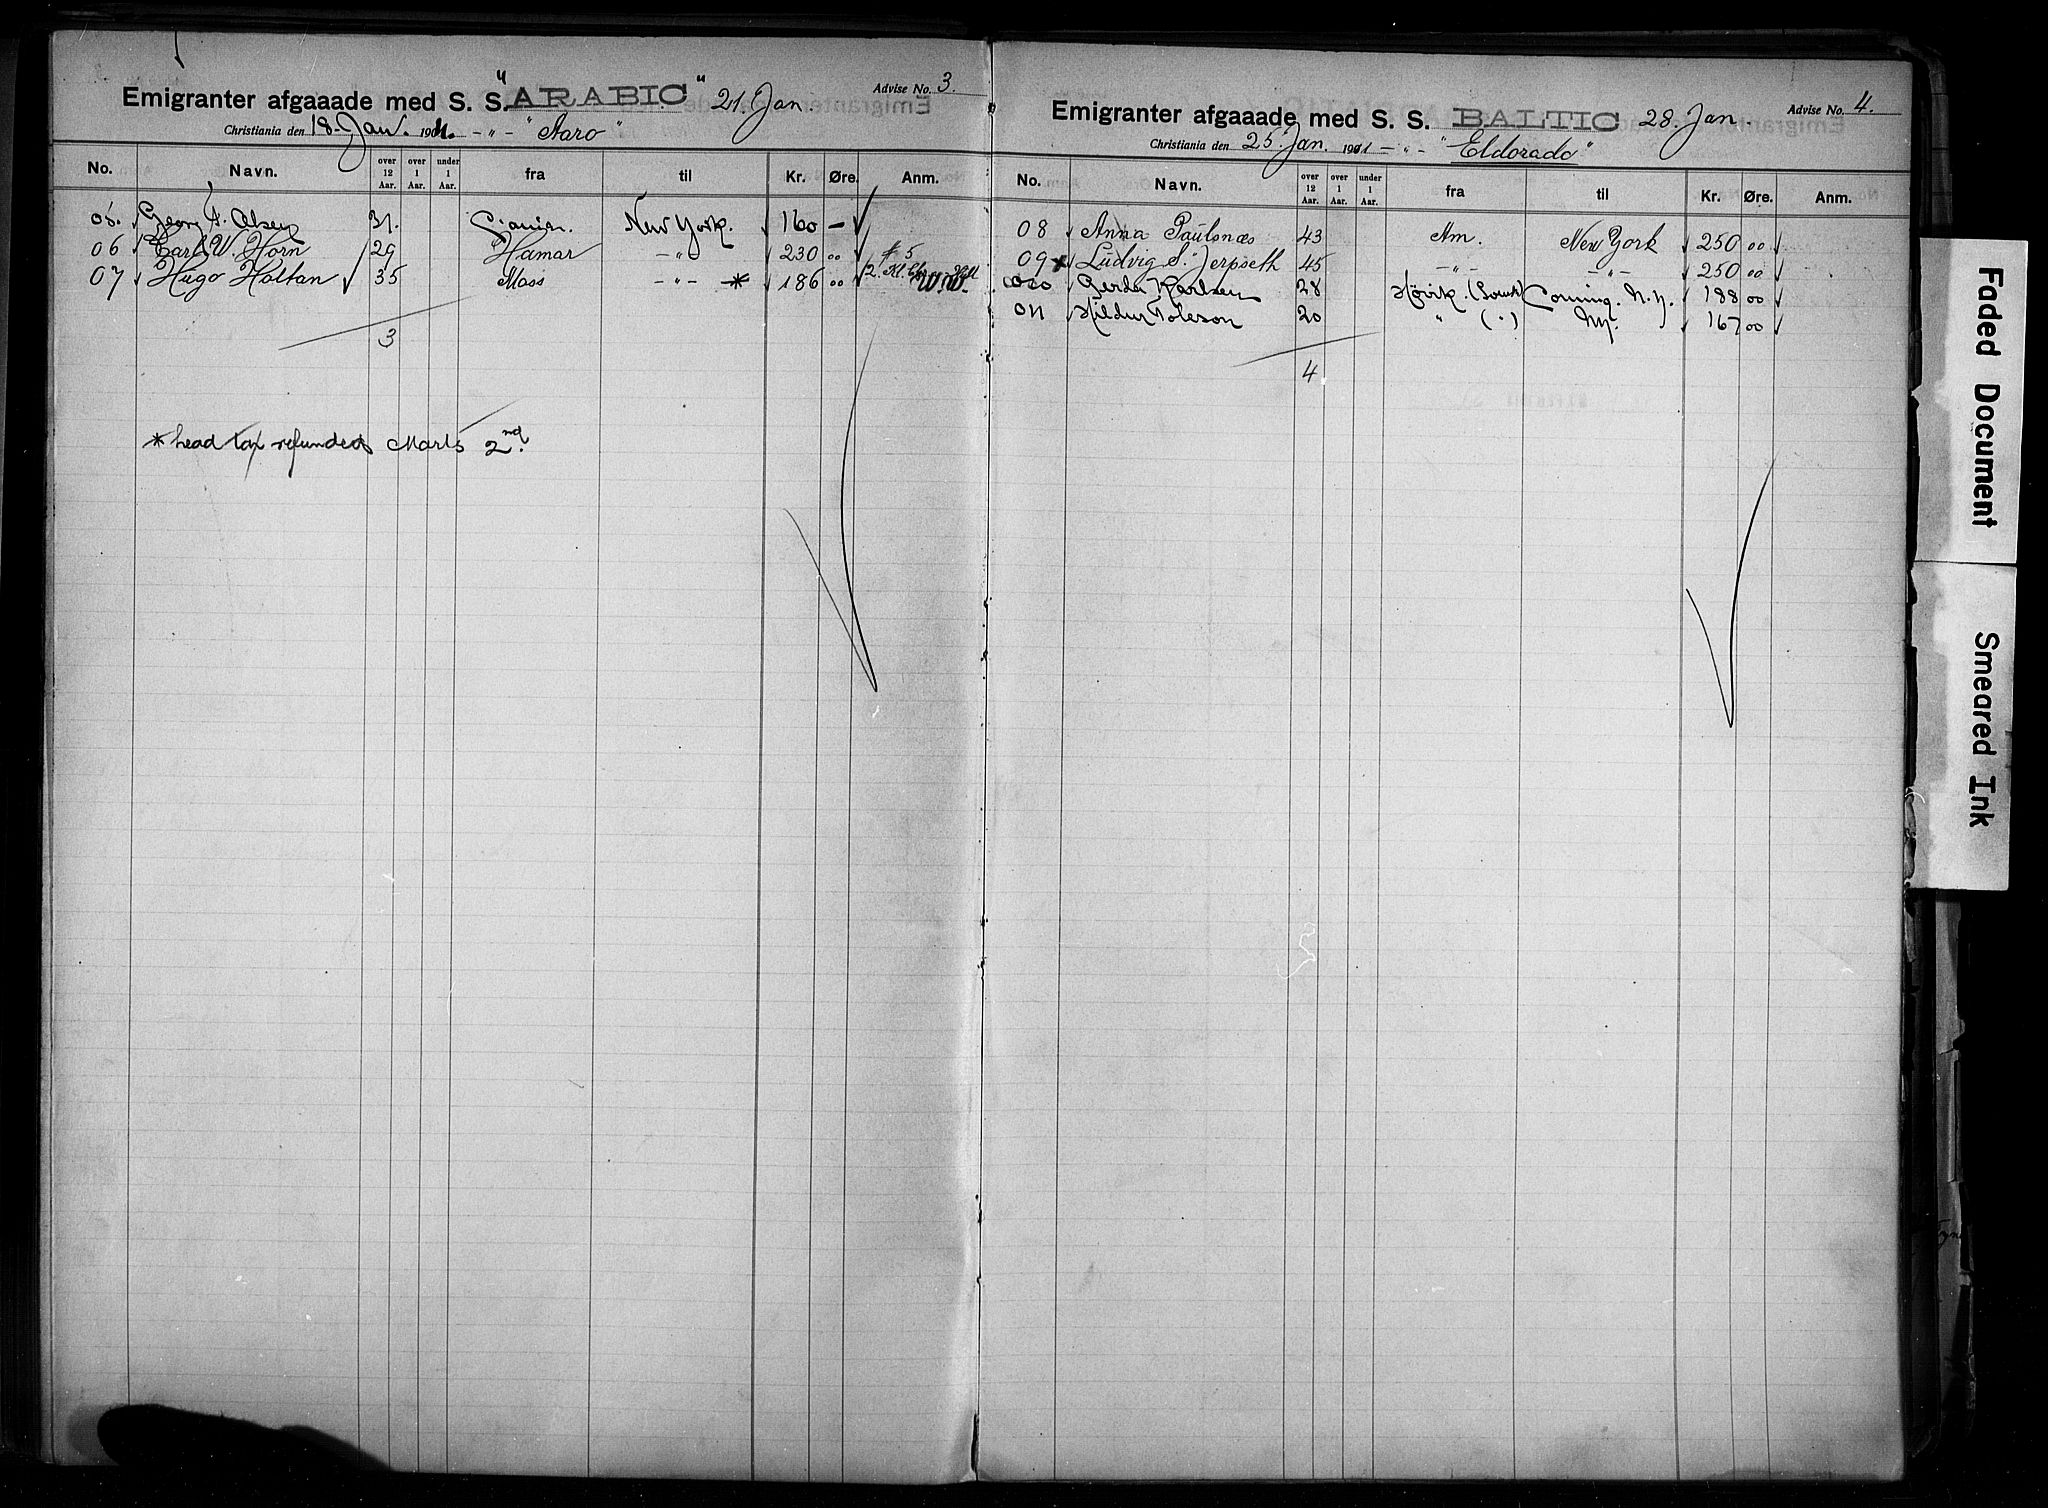 Emigranter afgaaade med S. S. "ARABIC" 21. Jan Advise No. 3.
Christiania den 18. Jan. 190 -"- "Aaro"
No. Navn. over 12 Aar. over 1 Aar. under 1 Aar. fra til Kr. Øre. Anm.
05. Georg A. Olsen 31. New York. 160 -
06 Carl W. Horn 29 Hamar -"- 230 00 # 5
07 Hugo Holtan 35 Moss -"- * 186 00 2. Kl.
3
* head tax refunded Marts 2nd.
Emigranter afgaaade med S. S. BALTIC 28. Jan. Advise No. 4.
Christiania den 25. Jan. 1911 -"- "Eldorado"
No. Navn. over 12 Aar. over 1 Aar. under 1 Aar. fra til Kr. Øre. Anm.
08 Anna Paulsnæs 43 Am. New York 250 00
09 x Ludvig S. Jerpseth 45 -"- -"- 250 00
010 Gerda Karlsen 28 Høvik. Corning. N.Y. 188 00
011 Hildur Toleson 20 " (") NY. 167 00
4
Faded Document
Smeared Ink